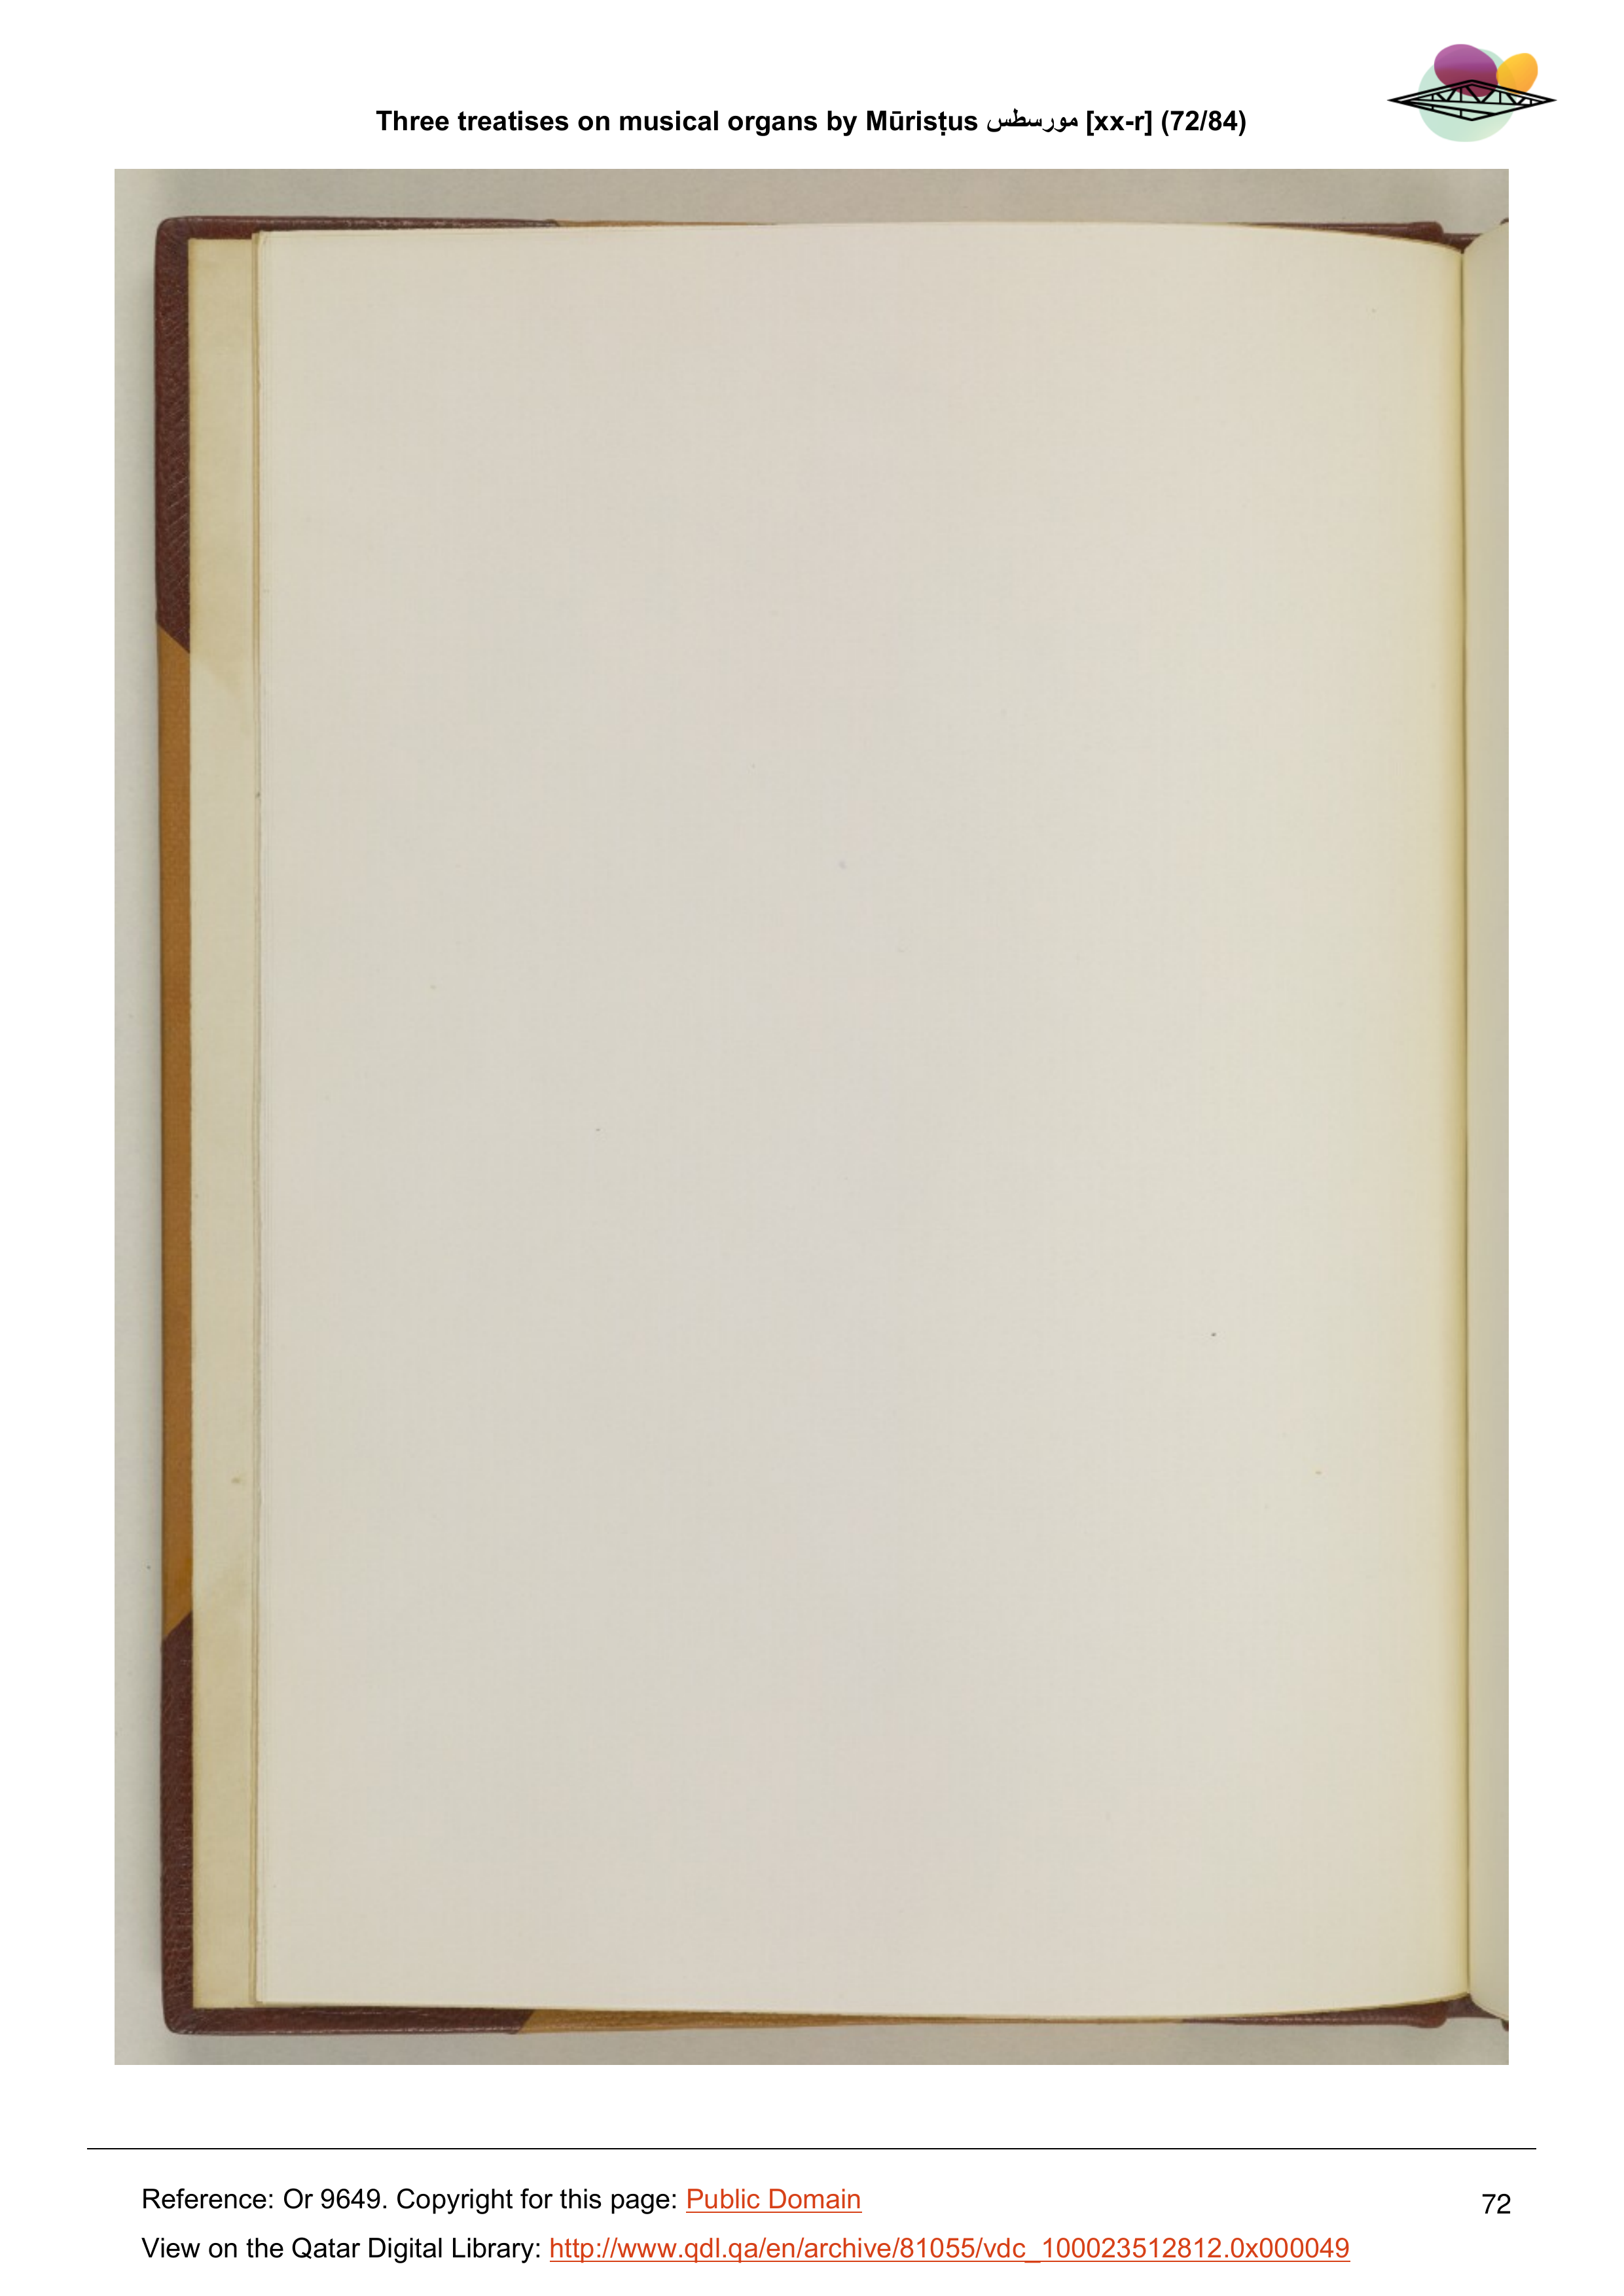 Three treatises on musical organs by Mūrisṭus مورسطس [xx-r] (72/84)
Reference: Or 9649. Copyright for this page: Public Domain
72
View on the Qatar Digital Library: http://www.qdl.qa/en/archive/81055/vdc_100023512812.0x000049